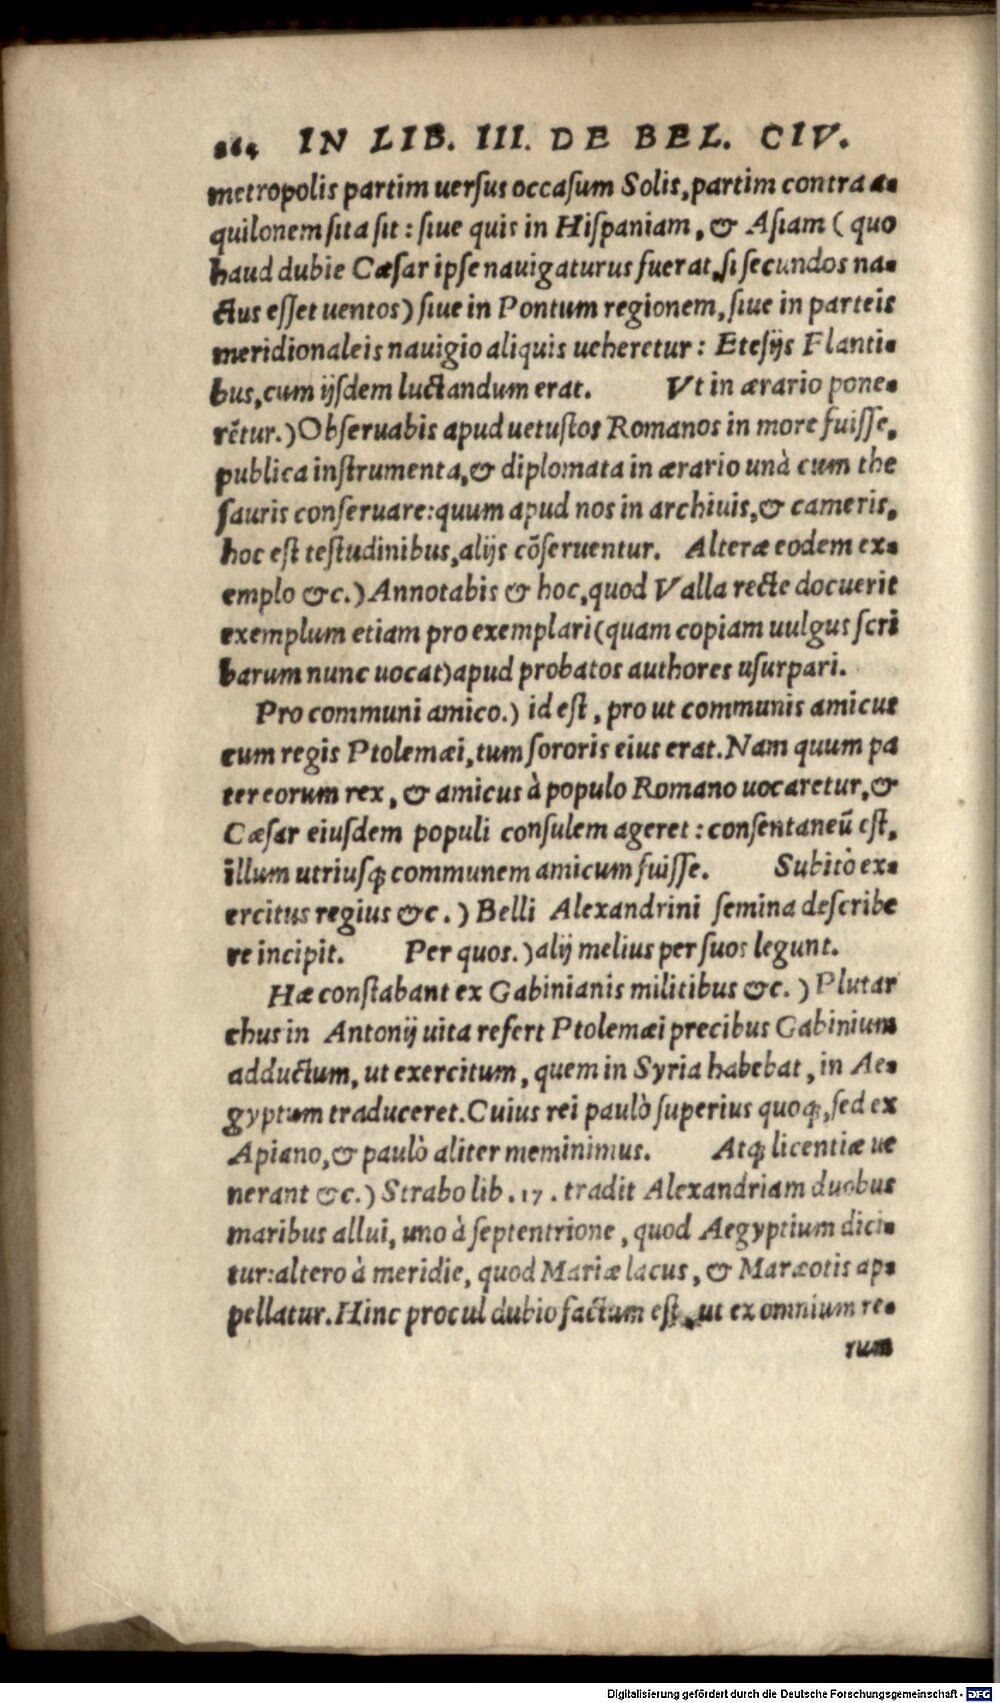 264 IN LIB. III. DE BEL. CIV.
metropolis partim uersus occasum Solis, partim contra a-
quilonem sita sit: siue quis in Hispaniam, & Asiam (quo
haud dubie Cæsar ipse nauigaturus fuerat, si secundos na-
ctus esset uentos) siue in Pontum regionem, siue in parteis
meridionaleis nauigio aliquis ueheretur: Etesijs Flanti-
bus, cum ijsdem luctandum erat. Vt in ærario pone-
rẽtur.) Obseruabis apud uetustos Romanos in more fuisse,
publica instrumenta, & diplomata in ærario unà cum the
sauris conseruare: quum apud nos in archiuis, & cameris,
hoc est testudinibus, alijs cõseruentur. Alteræ eodem ex-
emplo &c.) Annotabis & hoc, quod Valla recte docuerit
exemplum etiam pro exemplari (quam copiam uulgus scri
barum nunc uocat) apud probatos authores usurpari.
Pro communi amico.) id est, pro ut communis amicus
cum regis Ptolemæi, tum sororis eius erat. Nam quum pa
ter eorum rex, & amicus à populo Romano uocaretur, &
Cæsar eiusdem populi consulem ageret: consentaneũ est,
illum utriusq; communem amicum fuisse. Subitò ex-
ercitus regius &c.) Belli Alexandrini semina describe
re incipit. Per quos.) alij melius per suos legunt.
Hæ constabant ex Gabinianis militibus &c.) Plutar
chus in Antonij uita refert Ptolemæi precibus Gabinium
adductum, ut exercitum, quem in Syria habebat, in Ae-
gyptum traduceret. Cuius rei paulò superius quoq;, sed ex
Apiano, & paulò aliter meminimus. Atq; licentiæ ue
nerant &c.) Strabo lib. 17. tradit Alexandriam duobus
maribus allui, uno à septentrione, quod Aegyptium dici-
tur: altero à meridie, quod Mariæ lacus, & Maræotis ap-
pellatur. Hinc procul dubio factum est, ut ex omnium re-
rum
Digitalisierung gefördert durch die Deutsche Forschungsgemeinschaft - DFG